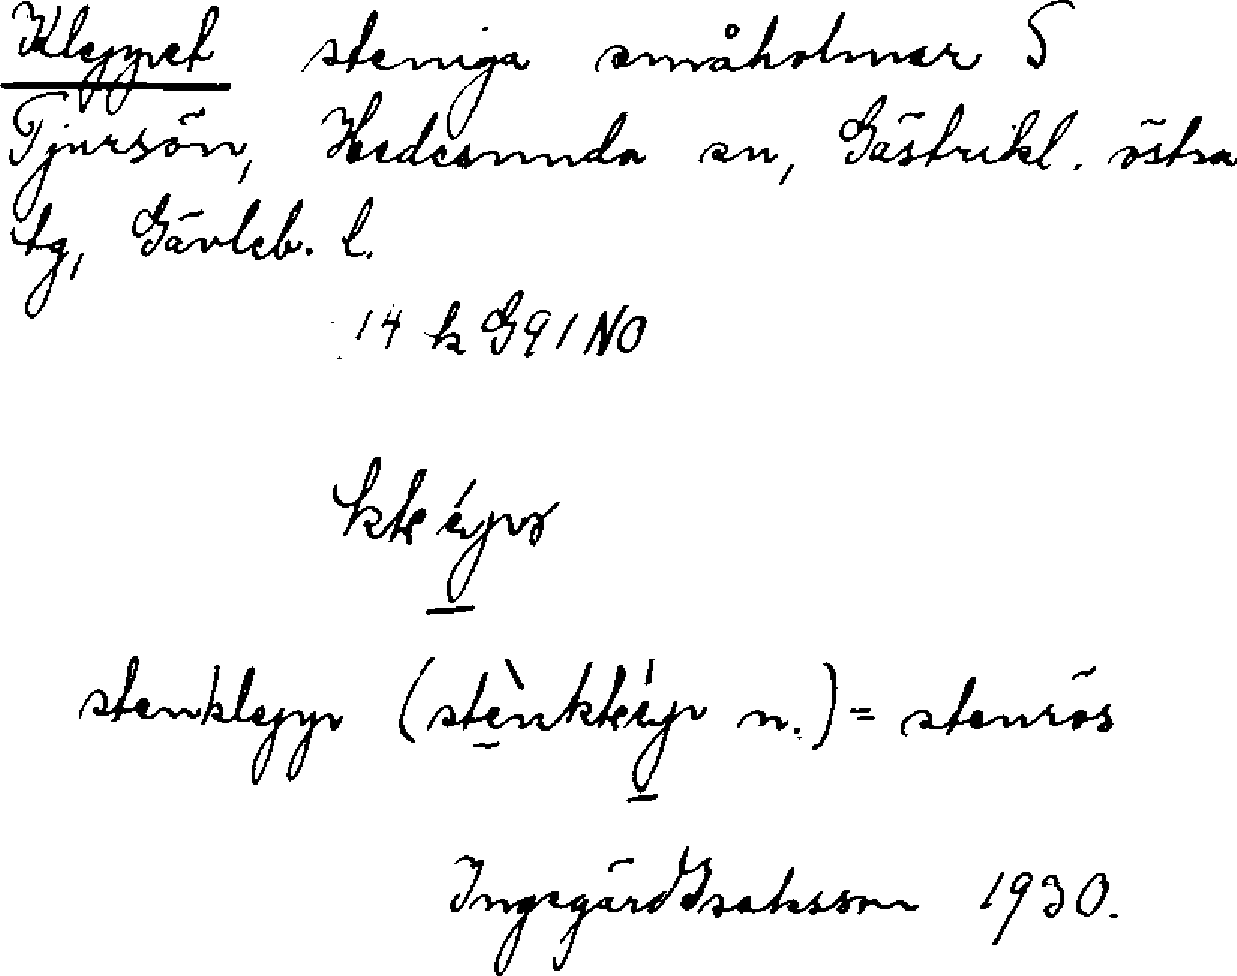 Kleppet steniga småholmar S
Tjursön, Hedesunda sn, Gästrikl. östra
tg, Gävleb. l.
14 k G91 NO
stenklepp ( n.) = stenrös
Ingegärd Isaksson 1930.